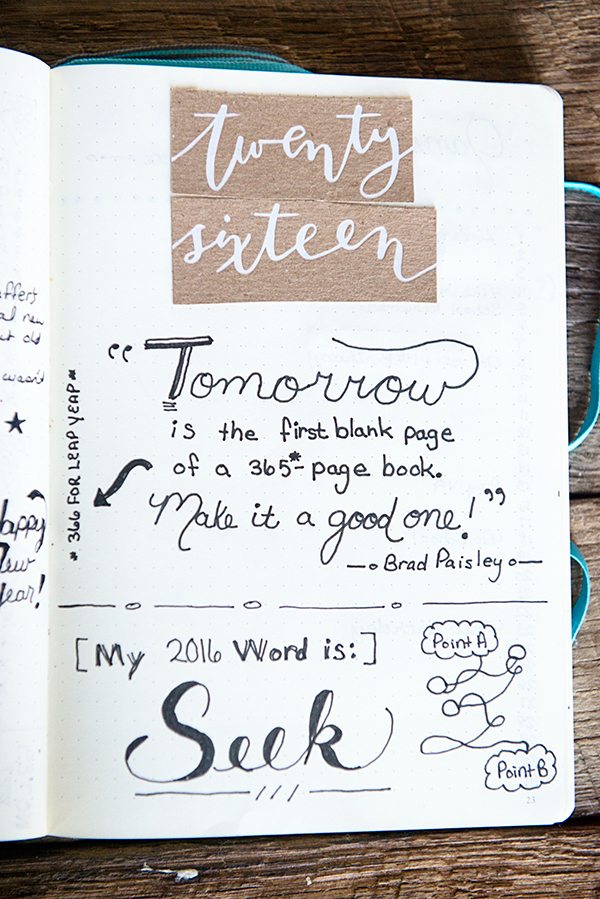 twenty
sixteen
"Tomorrow
is the first blank page
of a 365*-page book.
Make it a good one!"
—o Brad Paisley o—
* 366 FOR LEAP YEAR *
[My 2016 Word is:]
Seek
Point A
Point B
23
affers
new
old
wasn't
Happy
New
Year!